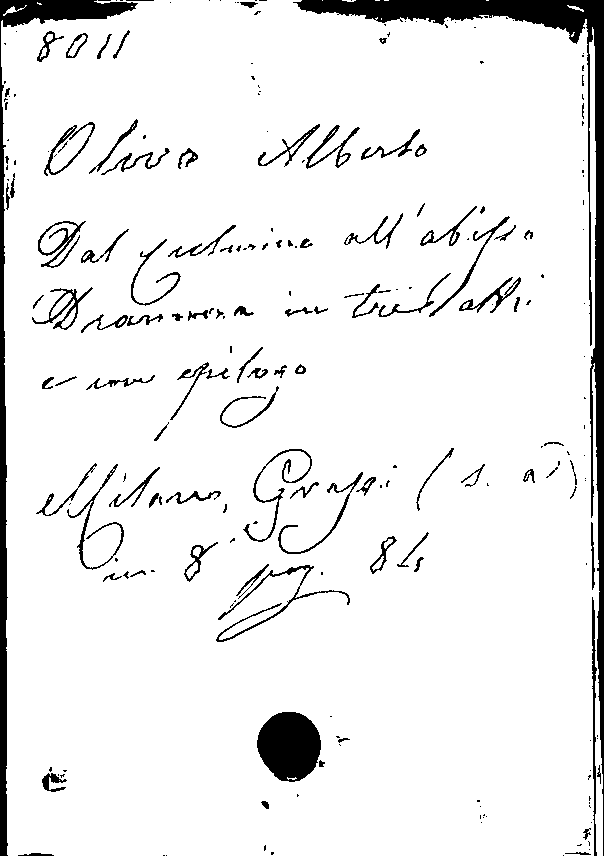 8011
Olivo Alberto
Dal all'abisso
Dramma in tre atti
e un epilogo
Milano, Grassi (s. a)
in 8° pag. 84